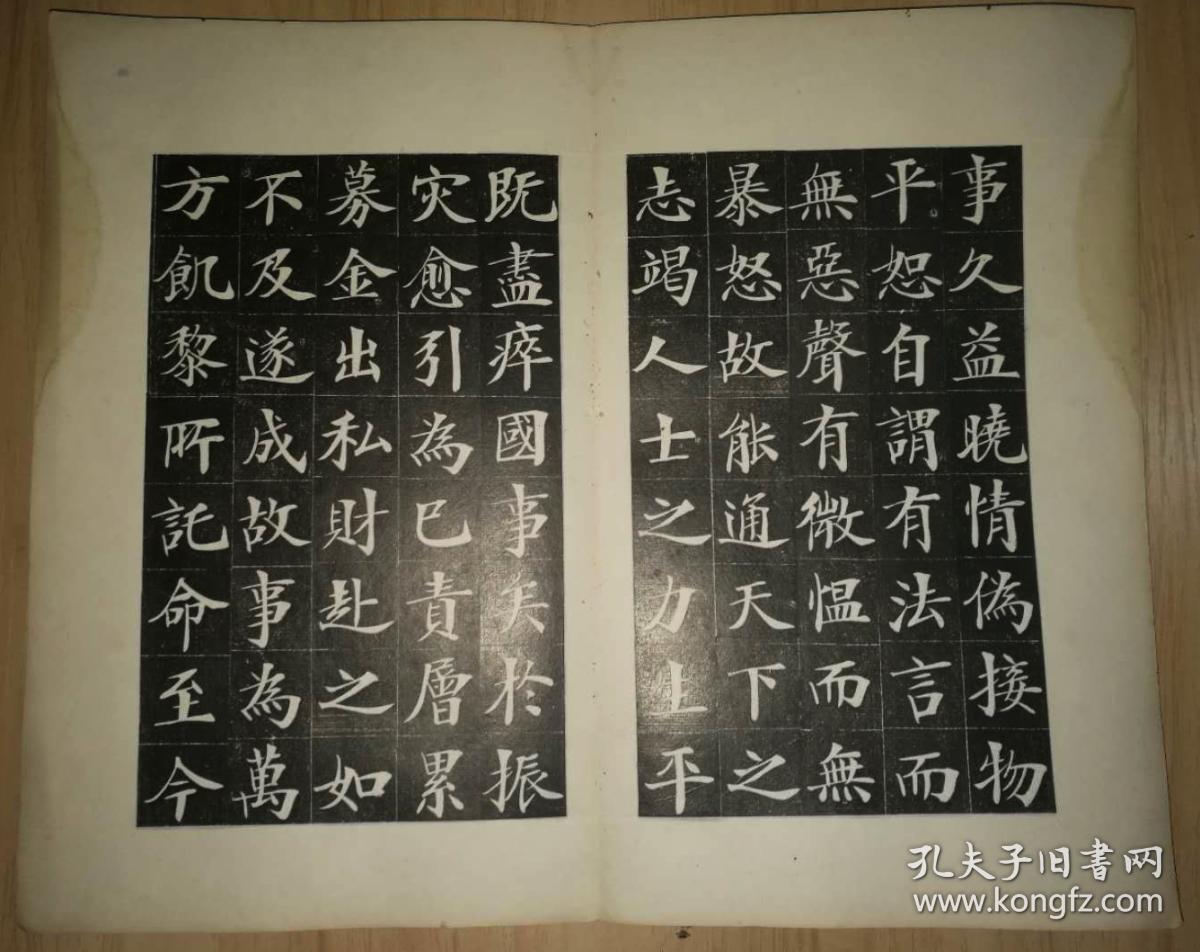 事久益曉情偽接物
平恕自謂有法言而
無惡聲有微愠而無
暴怒故能通天下之
志竭人士之力上平
既盡瘁國事矣於振
灾愈引為已責層累
募金出私財赴之如
不及遂成故事為萬
方飢黎所託命至今
孔夫子旧書网
www.kongfz.com